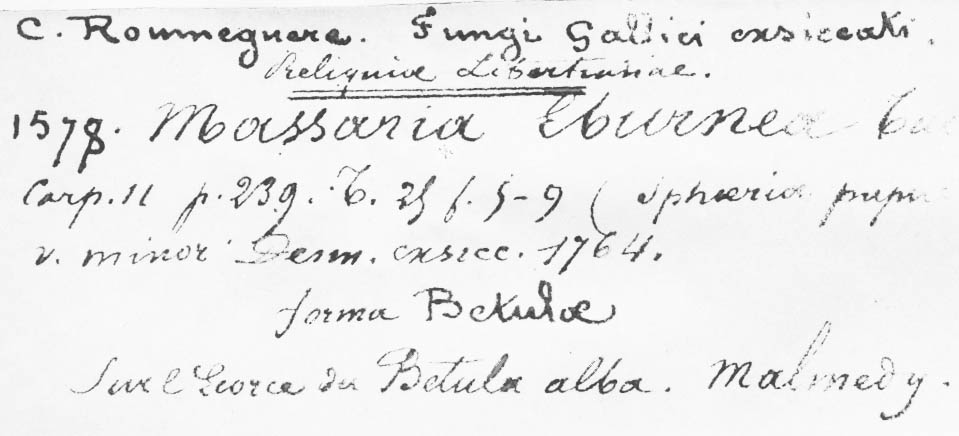 C. Roumeguere. Fungi Gallici exsiccati.
Reliquiæ Libertianae.
1578. Massaria Eburnea
Carp. II p. 239. T. 25 f. 5-9 (Sphæria
v. minor Desm. exsicc. 1764.
forma Betulæ
Sur l'Ecorce du Betula alba. Malmedy.